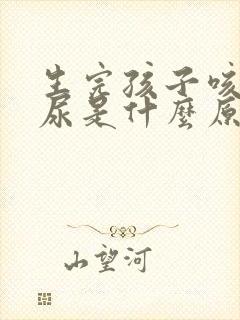 生完孩子咳
尿是什麼原
山望河